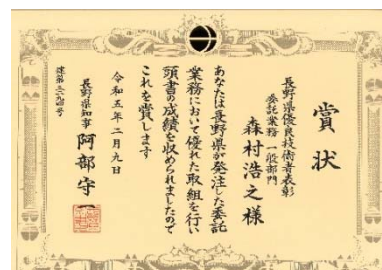 賞状
長野県優良技術者表彰
委託業務 一般部門
森村浩之様
あなたは長野県が発注した委託
業務において優れた取組を行い
頭書の成績を収められましたので
これを賞します
令和五年二月九日
長野県知事 阿部守一